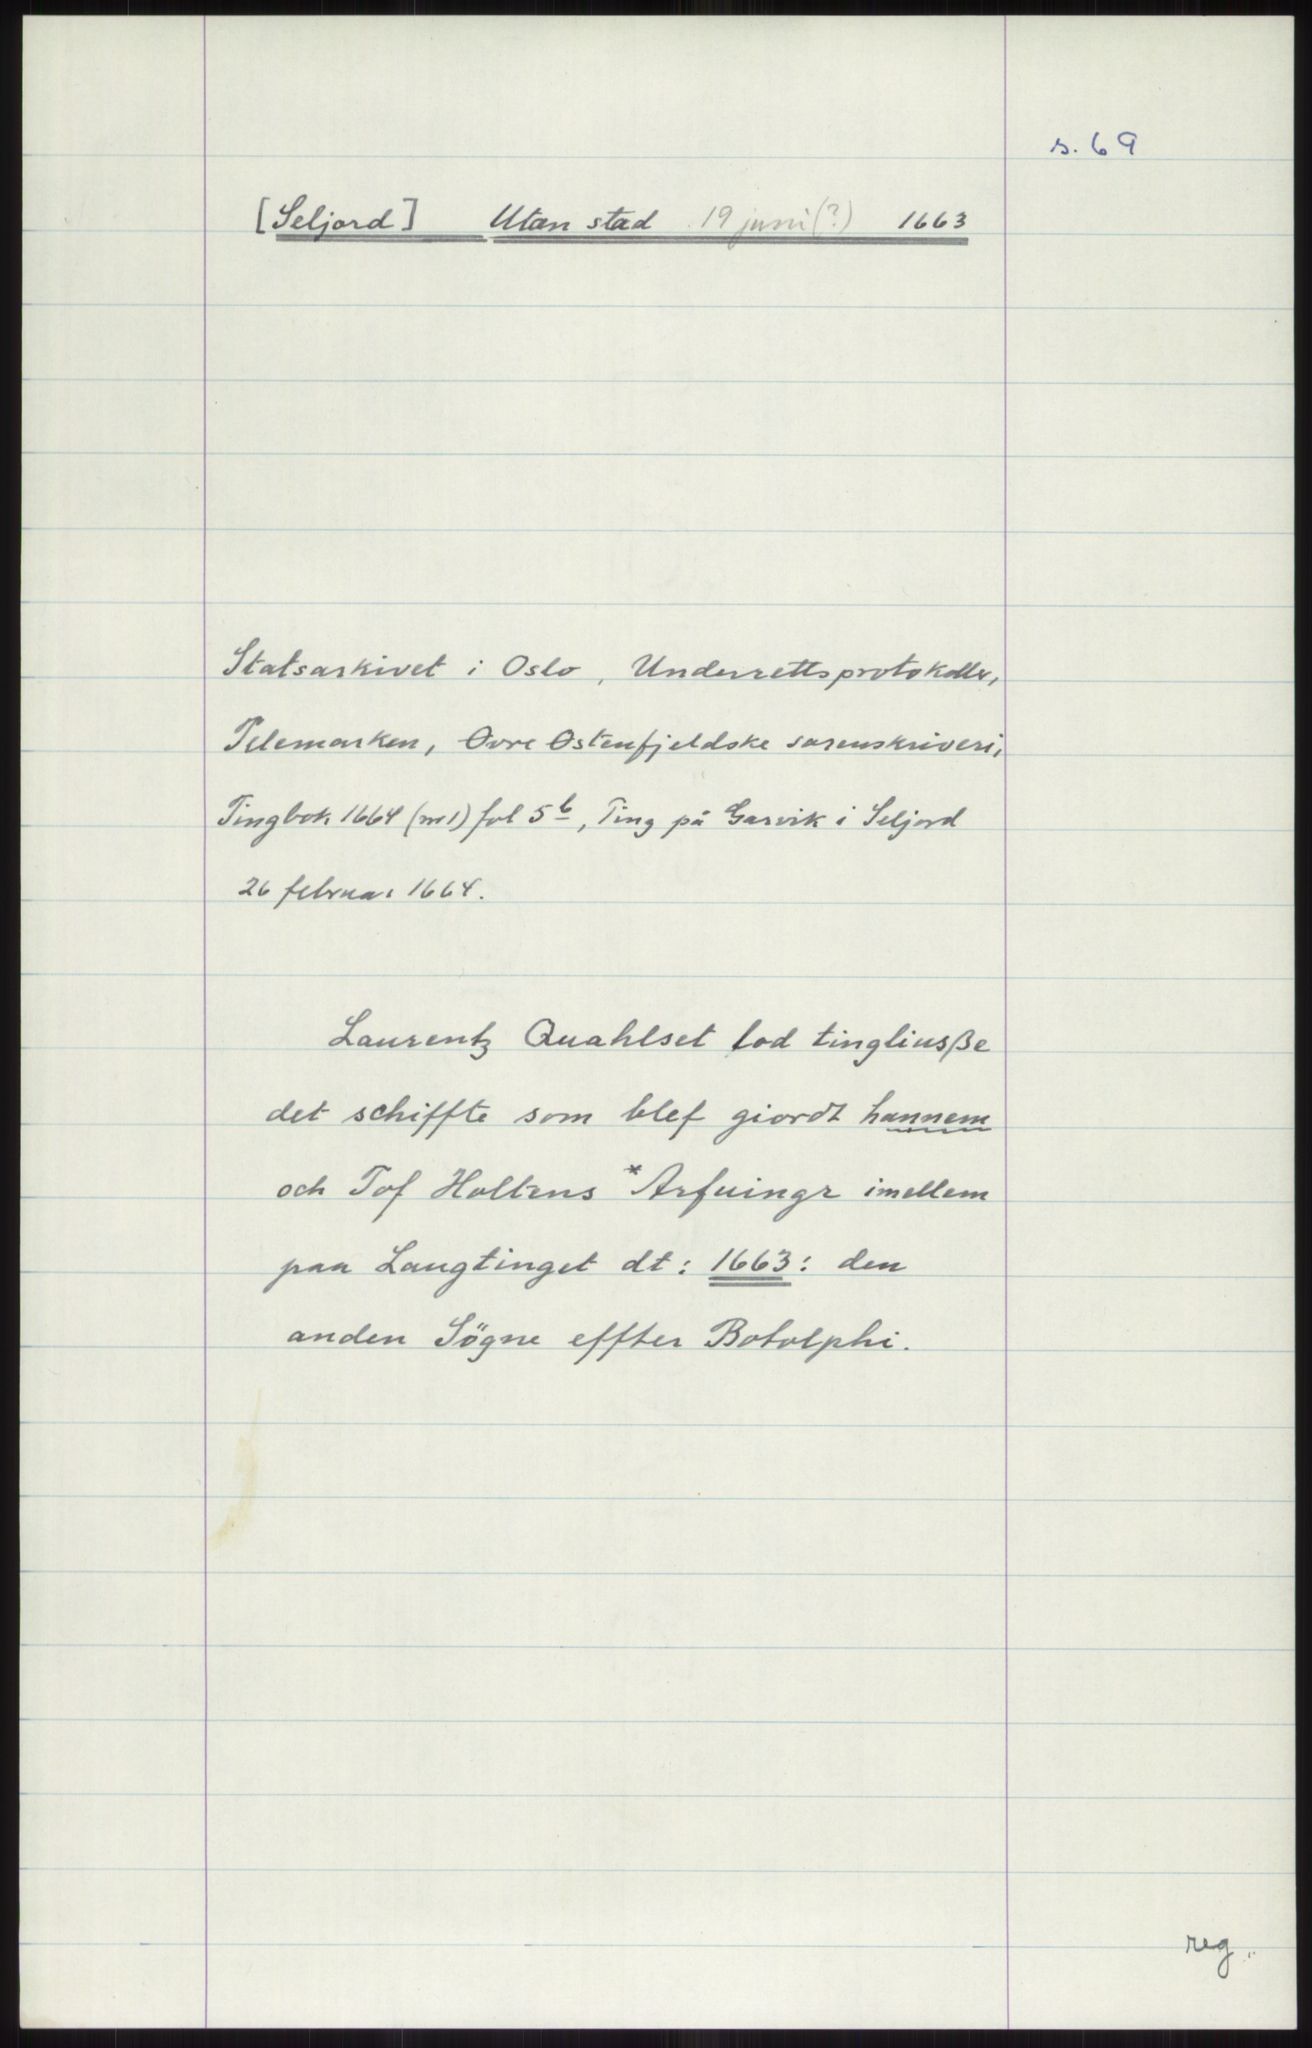 s. 69
[Seljord] Utan stad 19 juni (?) 1663
Statsarkivet i Oslo, Underrettsprotokoller,
Telemarken, Øvre Østenfjeldske sorenskriveri,
Tingbok 1664 (nr 1) fol 5 b, Ting på Garvik i Seljord
26 februar 1664.
Laurentz Quahlset lod tingliusße
det schiffte som blef giordt hannem
och Tof Holtens *Arfuingr imellem
paa Laugtinget dt: 1663: den
anden Sögne effter Botolphi.
reg.